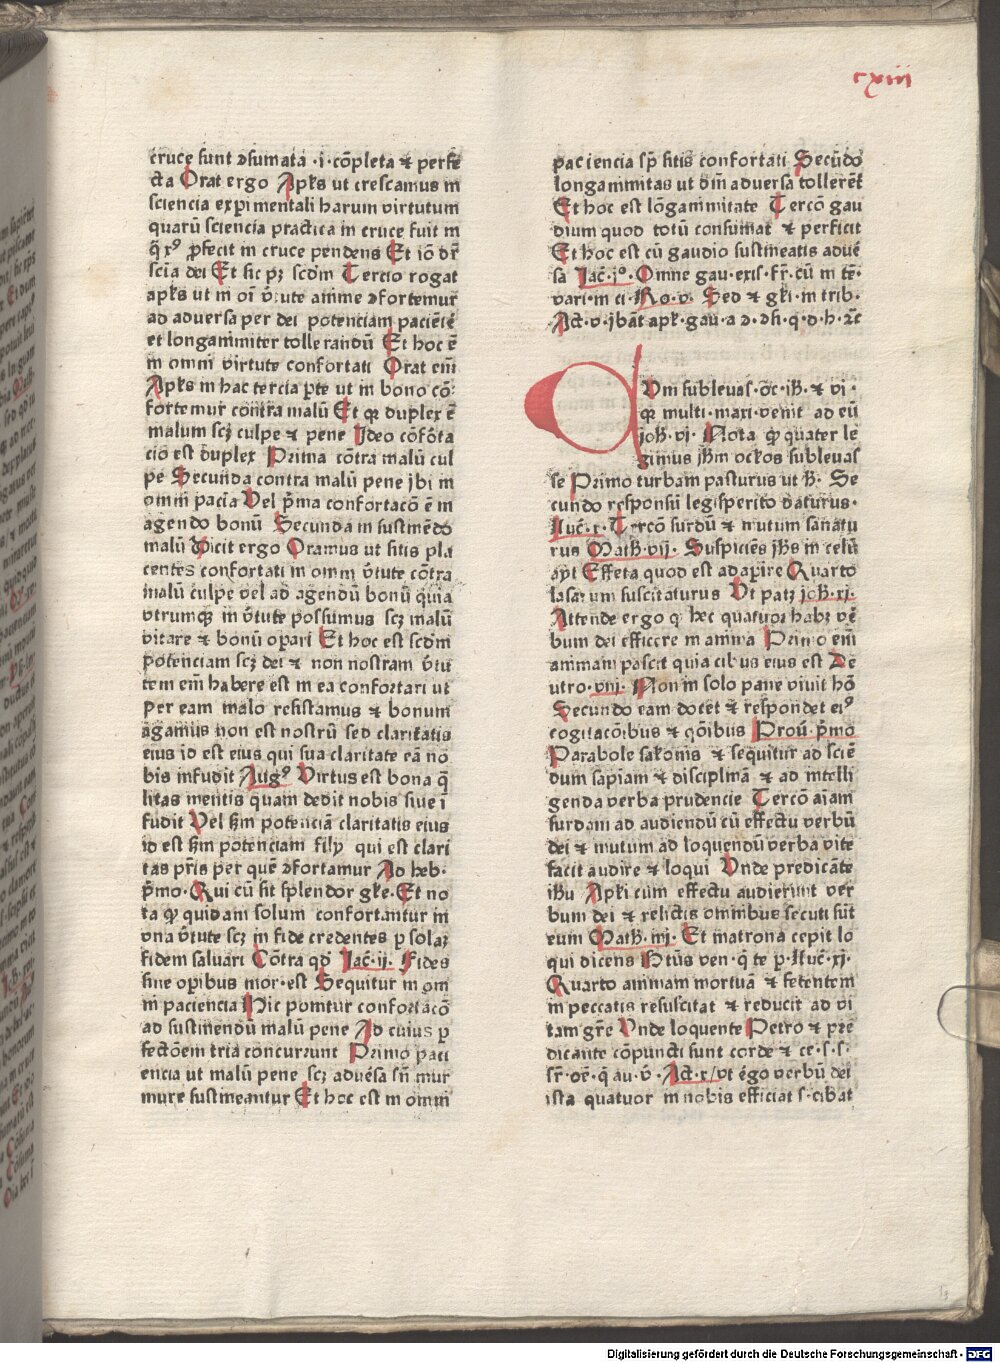 cxiii
cruce sunt ↄsumata ·i· cōpleta ⁊ perfe
cta Orat ergo Apl'us ut crescamus in
sciencia exp̱imentali harum virtutum
quarū sciencia practica in cruce fuit in
q̄ xꝰ ꝓfecit in cruce pendens Et iō dr̄
scīa dei Et sic pꝫ scd̄m Tercio rogat
apl'us ut in oī v̄tute anime ↄfortemur
ad aduersa per dei potenciam paciētē
et longanimiter tollerandū Et hoc ē
in omni virtute confortati Orat em̄
Apl'us in hac tercia p̱te ut in bono cō
fortemur contra malū Et qꝛ duplex ē
malum scꝫ culpe ⁊ pene Ideo cōfōta
ciō est duplex Prima cōtra malū cul
pe Secunda contra malū pene ibi in
omni pacīa Vel p̄ma confortacō ē in
agendo bonū Secunda in sustinēdo
malū Dicit ergo Oramus ut sitis pla
centes confortati in omni v̄tute cōtra
malū culpe vel ad agendū bonū quia
vtrumqꝫ in v̄tute possumus scꝫ malū
vitare ⁊ bonū op̱ari Et hoc est scd̄m
potenciam scꝫ dei ⁊ non nostram v̄tu
tem em̄ habere est in ea confortari ut
per eam malo resistamus ⁊ bonum
agamus non est nostrū sed claritatis
eius id est eius qui sua claritate eā no
bis infudit Augꝰ Virtus est bona q̄
litas mentis quam dedit nobis siue ī
fudit Vel ẜm potenciā claritatis eius
id est ẜm potenciam filij qui est clari
tas pr̄is per quē ↄfortamur Ad heb·
p̄mo· Qui cū sit splendor gl'e· Et no
ta ꝙ quidam solum confortantur in
vna v̄tute scꝫ in fide credentes p̱ solaꝫ
fidem saluari Cōtra qd̄ Iac̄·ij· Fides
sine op̱ibus mor·est Sequitur in om
ni paciencia Hic ponitur confortacō
ad sustinendū malū pene Ad cuius p̱
fectōem tria concurrunt Primo paci
encia ut malū pene scꝫ aduēsa sn̄ mur
mure sustineantur Et hoc est in omni
paciencia sp̄ sitis confortati Secūdo
longanimitas ut dīm aduersa tollerēt
Et hoc est lōganimitate Tercō gau
dium quod totū consumat ⁊ perficit
Et hoc est cū gaudio sustineatis aduē
sa Iac̄·iº· Omne gau·exis·fr̄·cū in tē·
vari·in ci·Ro·v· Sed ⁊ gl'i·in trib·
Act·v·ibāt apl'·gau·a ↄ·ↄſi·q·d·h·⁊c̄
Vm subleuaſ·oc̄·ih̄·⁊ vi·
qꝛ multi·maxi·venit ad eū
ioh̄·vi· Nota ꝙ quater le
gimus ih̄m oc'los subleuas
se Primo turbam pasturus ut h̄· Se
cundo responsū legisperito daturus·
Luc̄·x· Tercō surdū ⁊ mutum sanatu
rus Math̄·vij· Suspiciēs ih̄s in celū
ayt Effeta quod est adap̱ire Quarto
lasarum suscitaturus Vt patꝫ ioh̄·xi·
Attende ergo q̇ hec quatuor habꝫ vē
bum dei efficere in anima Primo em̄
animam pascit quia cibus eius est De
utro·viij· Non in solo pane viuit hō
Secundo eam docet ⁊ respondet eiꝰ
cogitacōibus ⁊ qōibus Prou̅·p̄mo
Parabole salomis ⁊ sequitur ad sciē
dum sapiam ⁊ disciplinā ⁊ ad intelli
genda verba prudencie Tercō aīam
surdam ad audiendū cū effectu verbū
dei ⁊ mutum ad loquendū verba vite
facit audire ⁊ loqui Vnde predicāte
ih̄u Apl'i cum effectu audierunt ver
bum dei ⁊ relictis omnibus secuti sūt
eum Math̄·iiij· Et matrona cepit lo
qui dicens Btūs ven·q̇ te p·Luc̄·xj·
Quarto animam mortuā ⁊ fetentem
in peccatis resuscitat ⁊ reducit ad vi
tam gr̄e Vnde loquente Petro ⁊ pre
dicante cōpuncti sunt corde ⁊ ce·s·s·
sr̄·oē·q̇ au·v̄· Act·x· vt ergo verbū dei
ista quatuor in nobis efficiat s·cibat
Digitalisierung gefördert durch die Deutsche Forschungsgemeinschaft - DFG